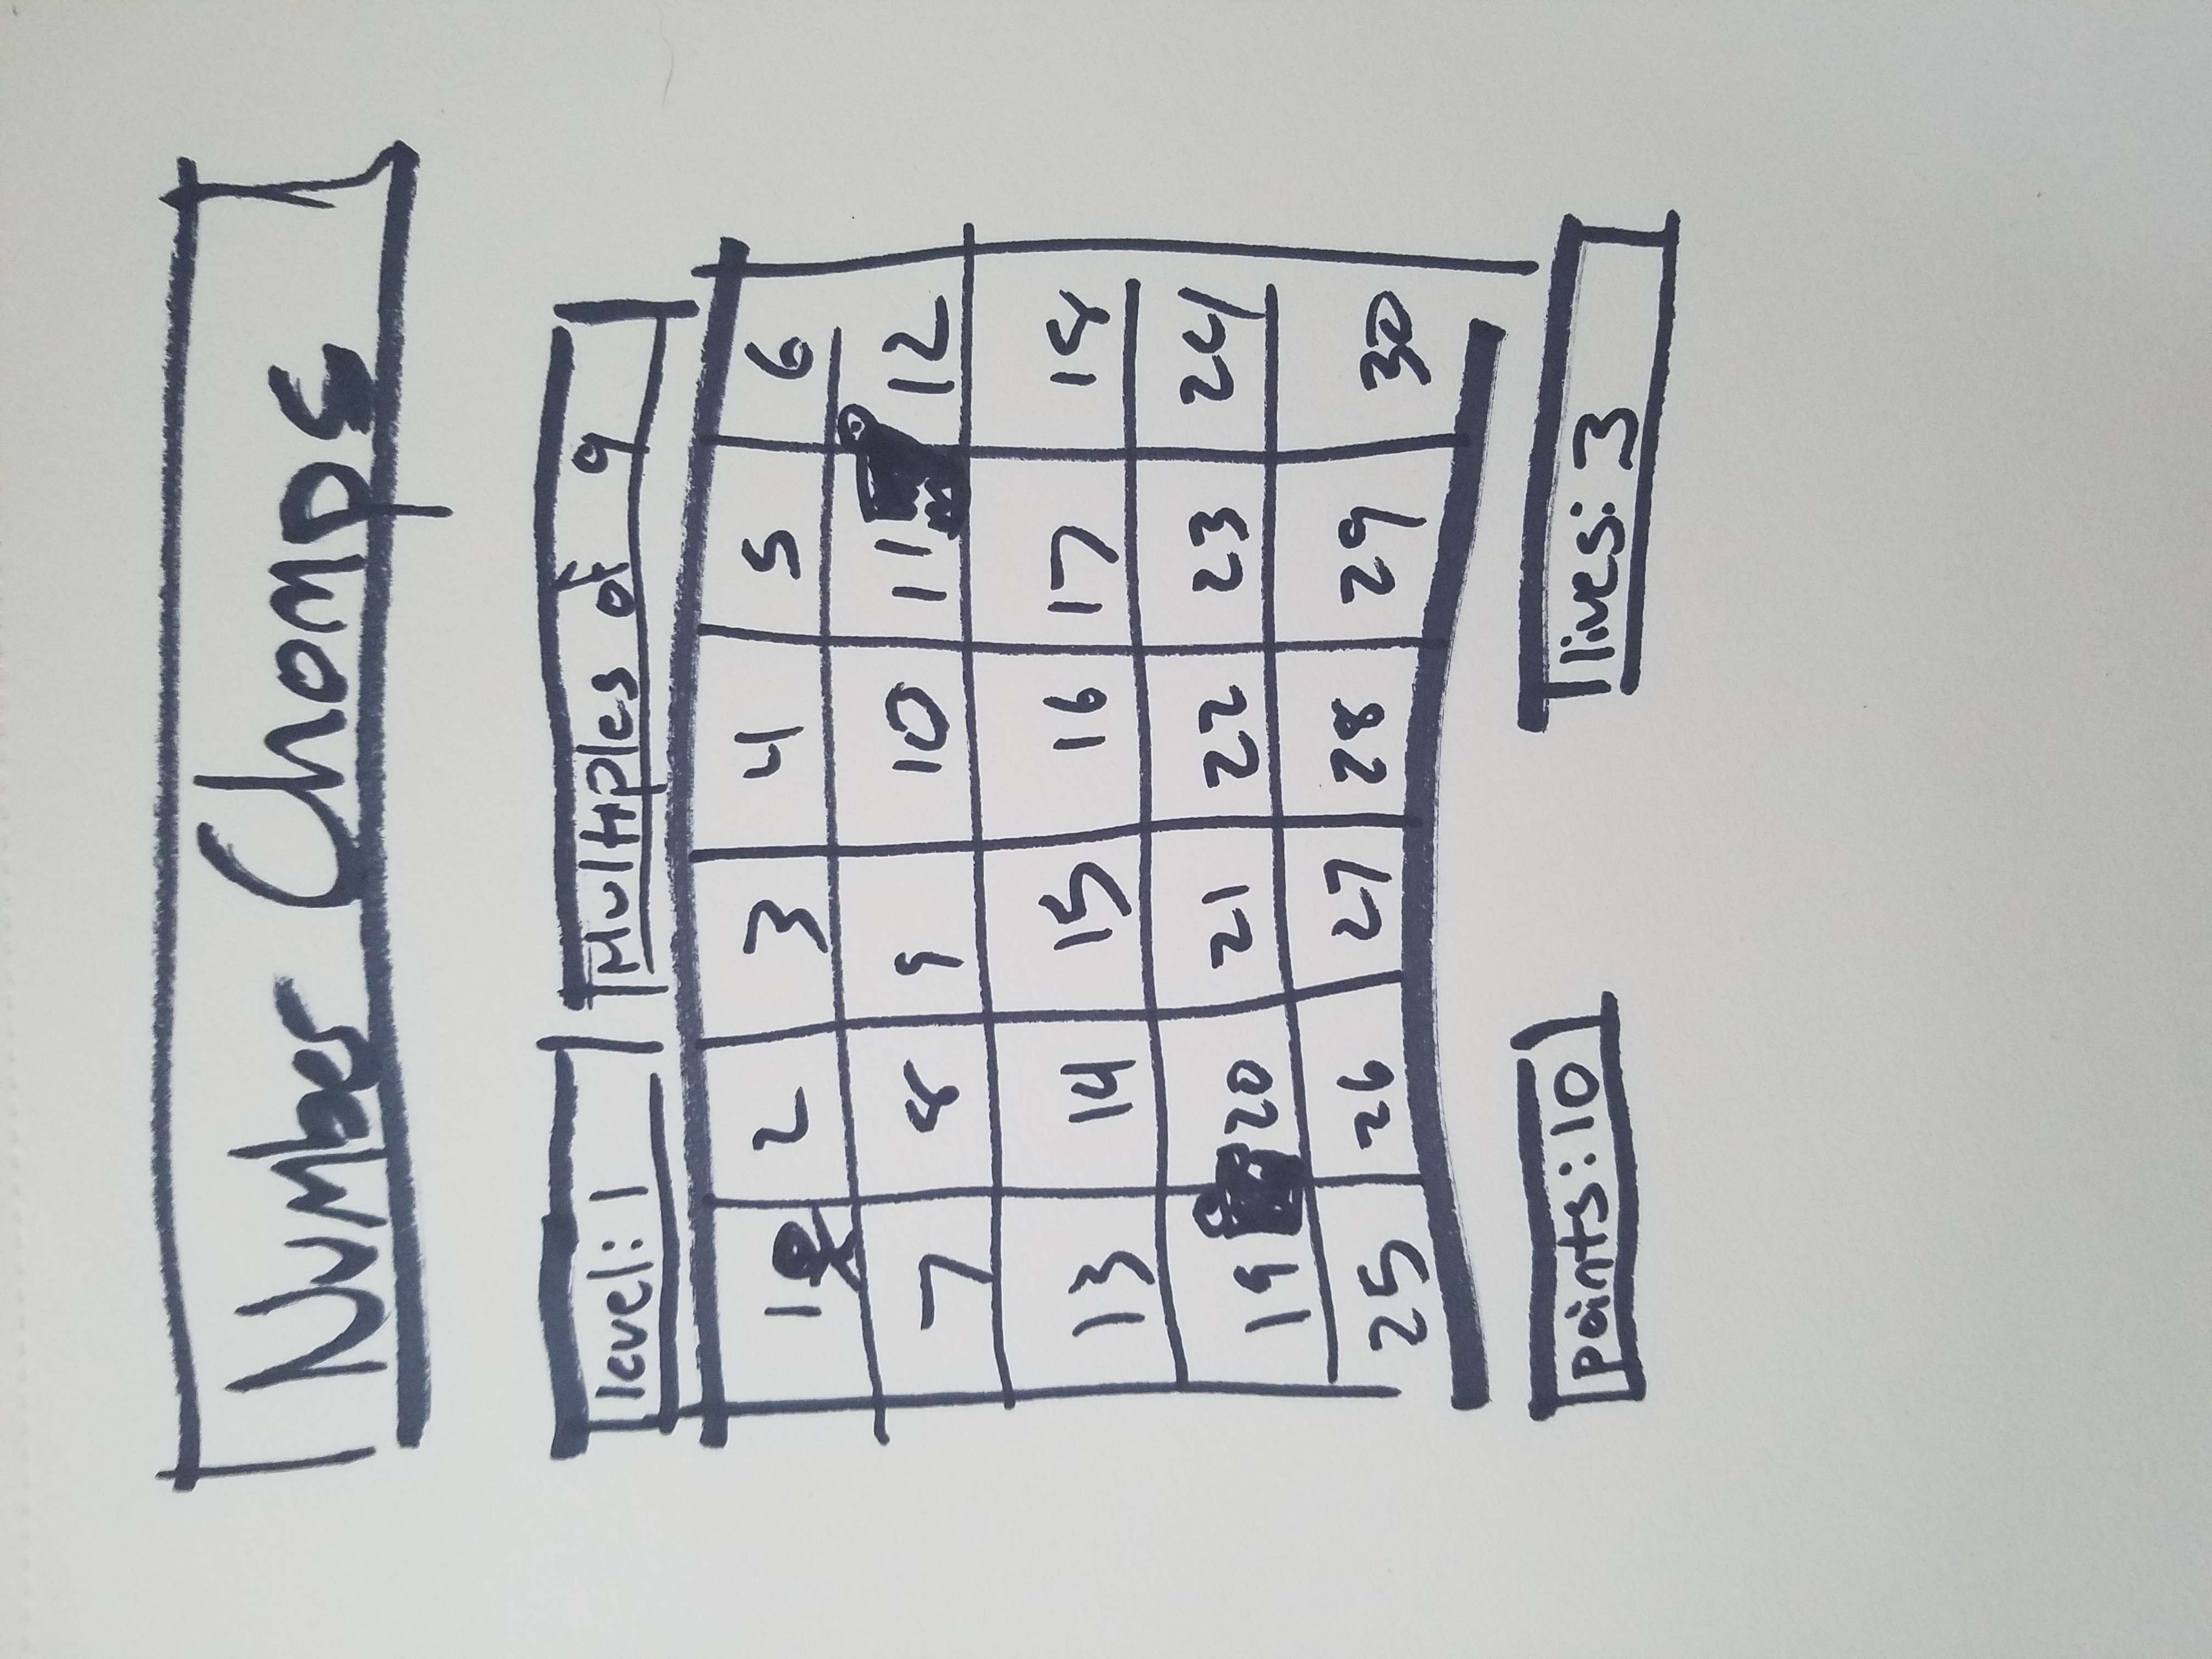 Number Chomps
level: 1 Multiples of 9
1 2 3 4 5 6
7 8 9 10 11 12
13 14 15 16 17 18
19 20 21 22 23 24
25 26 27 28 29 30
points: 10 lives: 3